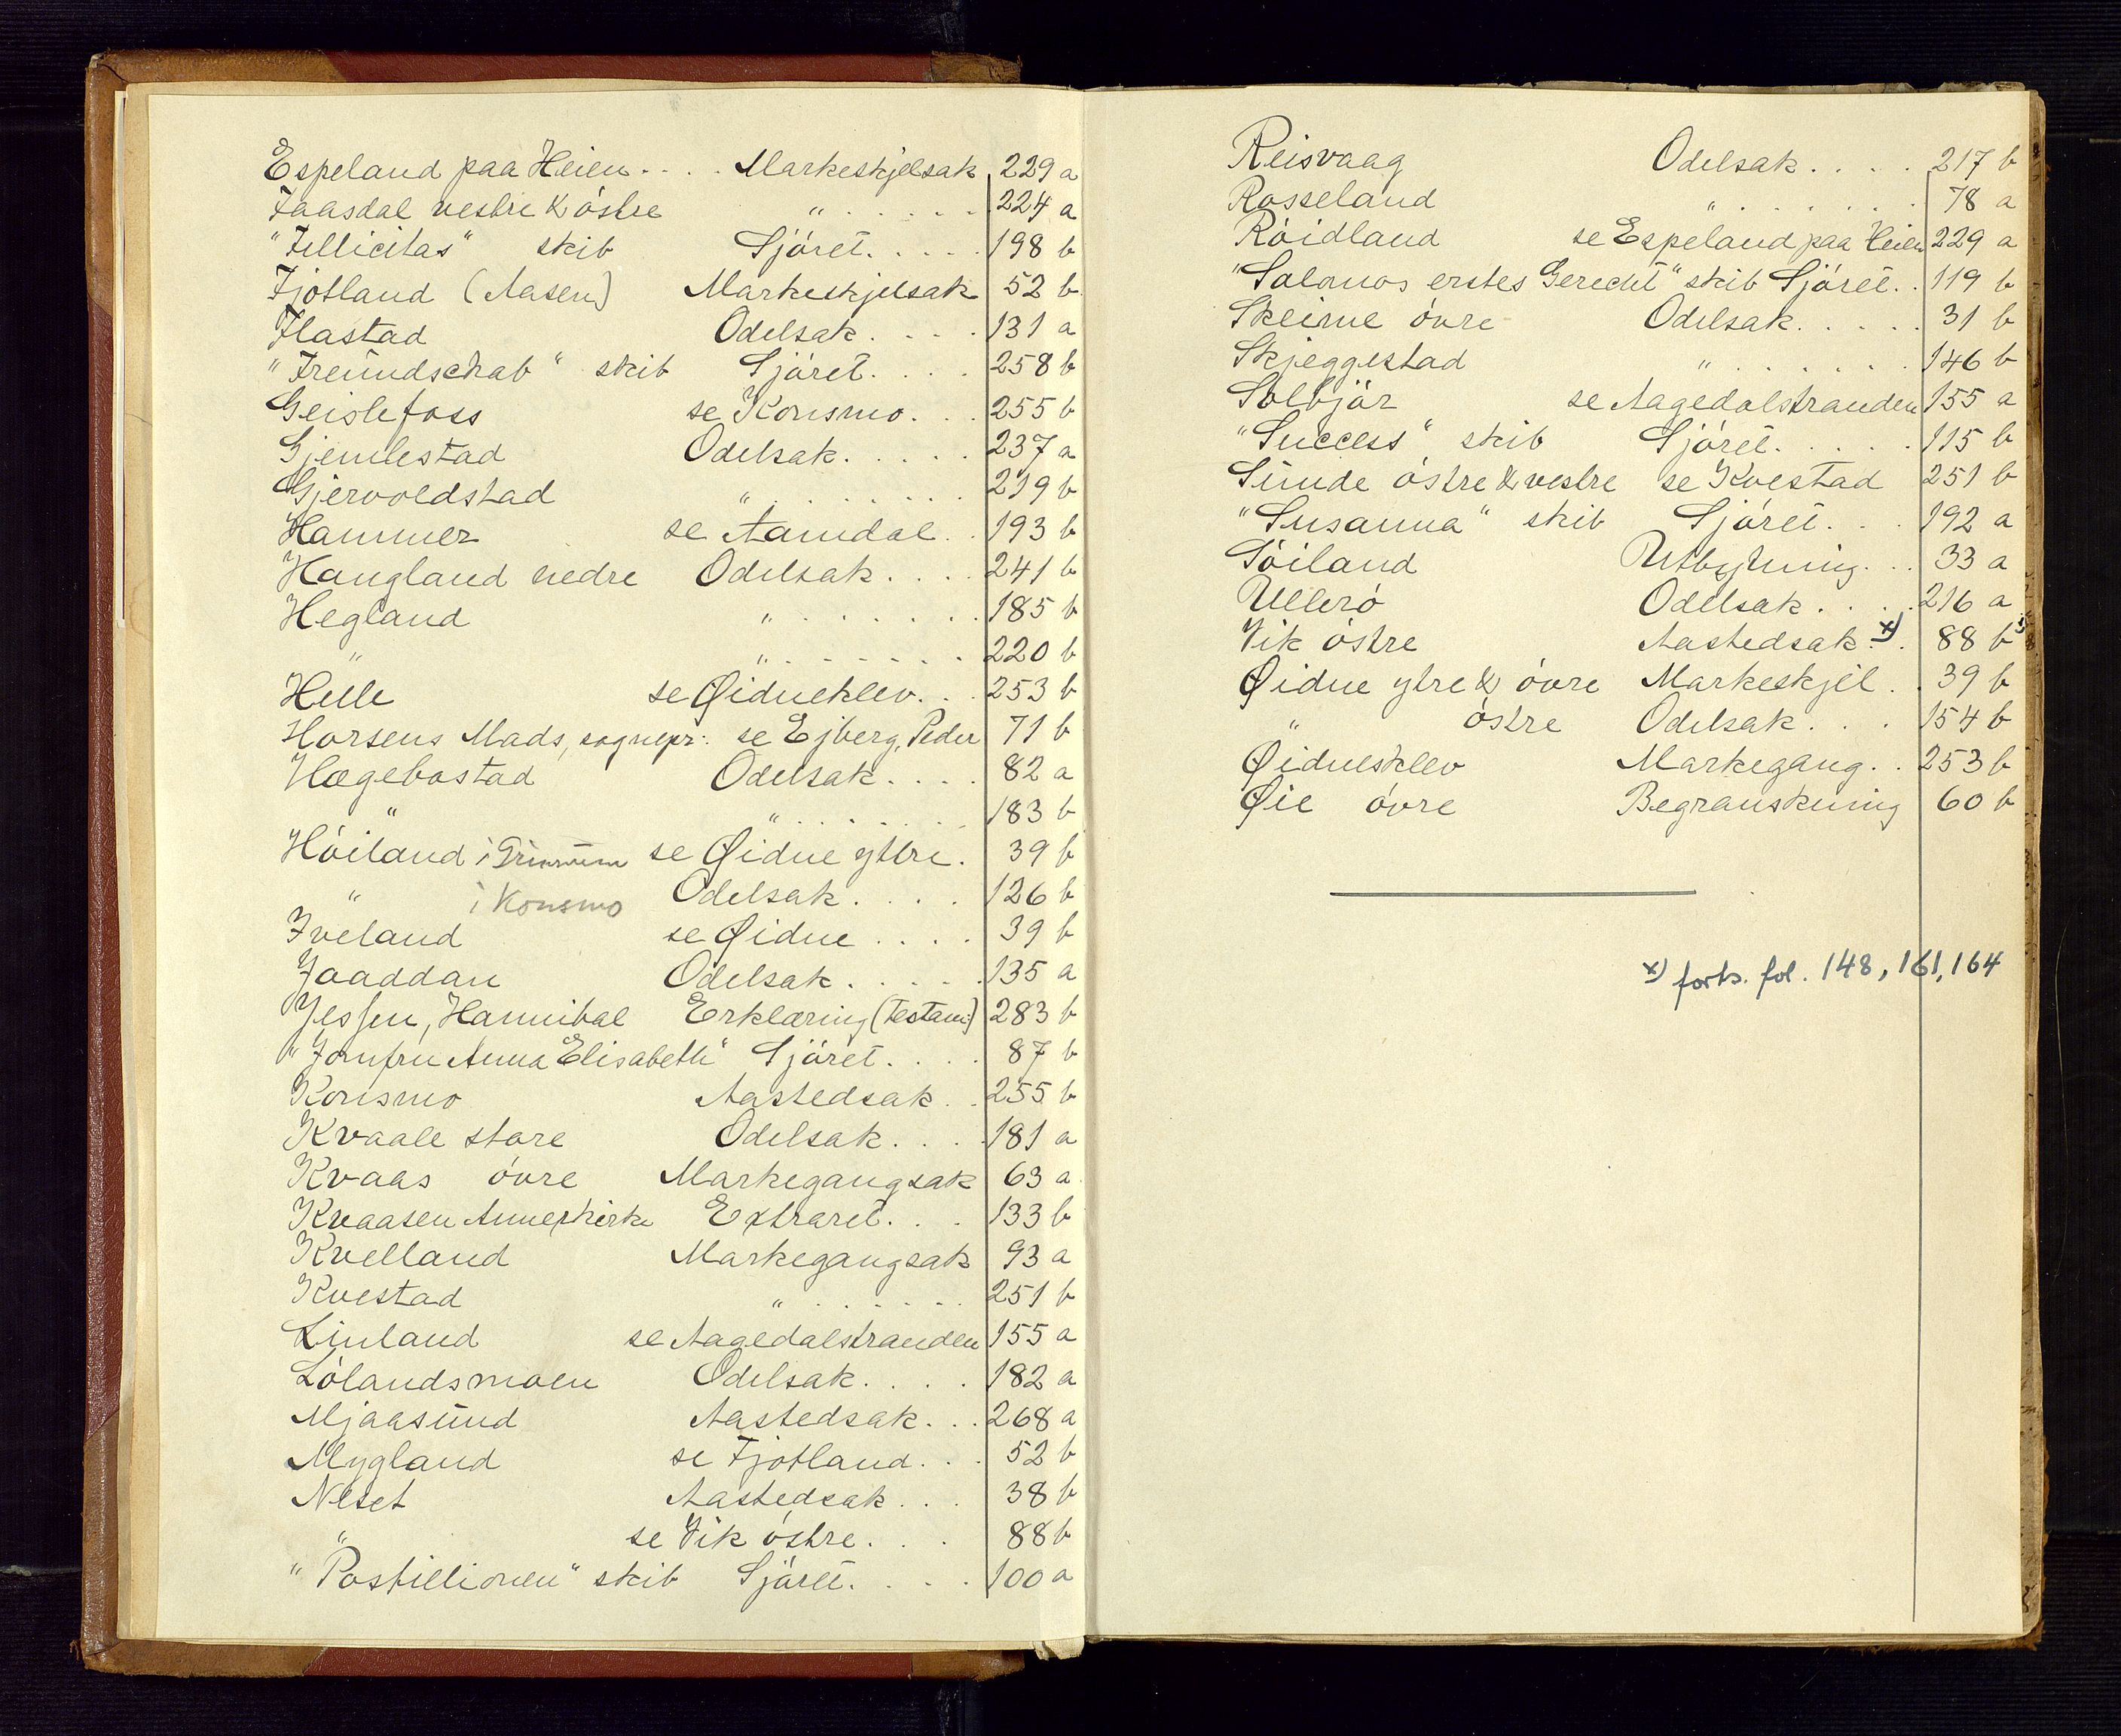 Espeland paa Heien . . . . Markeskjelsak 229 a
Faasdal vestre & östre " . . . . . . 224 a
"Fellicitas" skib Sjöret. . . . . 198 b
Fjotland (Aasen) Markeskjelsak 52 b
Flastad Odelsak. . . . 131 a
"Freundschab" skib Sjöret. . . . 258 b
Geislefoss se Konsmo. . . 255 b
Gjemlestad Odelsak. . . . . 237 a
Gjervoldstad " . . . . . . . 219 b
Hammer se Aamdal. . . 193 b
Haugland nedre Odelsak. . . . 241 b
Hegland " . . . . . . . 185 b
" " . . . . . . . 220 b
Helle se Øidneklev. . . 253 b
Horsens Mads, sognepr: se Ejberg, Peder 71 b
Hægebostad Odelsak. . . . 82 a
" " . . . . . . . 183 b
Höiland i Grinnum se Øidne yttre. 39 b
" i Konsmo Odelsak. . . . 126 b
Iveland se Øidne . . . . 39 b
Jaaddan Odelsak. . . . . 135 a
Jessen, Hannibal Erklæring (testam:) 283 b
"Jomfru Anna Elisabeth" Sjöret. . . . 87 b
Konsmo Aastedsak. . 255 b
Kvaale store Odelsak. . . . 181 a
Kvaas övre Markegangsak 63 a
Kvaasen Annexkirke Extraret. . . 133 b
Kvelland Markegangsak 93 a
Kvestad " . . . . . . 251 b
Linland se Aagedalstranden 155 a
Lölandsmoen Odelsak. . . . 182 a
Mjaasund Aastedsak. . . 268 a
Mygland se Fjotland. . . 52 b
Neset Aastedsak. . . 38 b
" se Vik östre. . . 88 b
"Postillionen" skib Sjöret. . . . 100 a
Reisvaag Odelsak. . . . 217 b
Rosseland " . . . . . . . 78 a
Röidland se Espeland paa Heien 229 a
"Salomos erstes Gerecht" skib Sjöret. . 119 b
Skeime övre Odelsak. . . . . 31 b
Skjeggestad " . . . . . . 146 b
Solbjör se Aagedalstranden 155 a
"Success" skib Sjöret. . . . . 115 b
Sunde östre & vestre se Kvestad 251 b
"Susanna" skib Sjöret. . . 192 a
Söiland Utbytning. . . 33 a
Ullerö Odelsak. . . . 216 a
Vik östre Aastedsak. x) . 88 b
Øidne ytre & övre Markeskjel. . 39 b
" östre Odelsak. . . 154 b
Øidnesklev Markegang. . 253 b
Øie övre Begranskning 60 b
x) forts. fol. 148, 161, 164